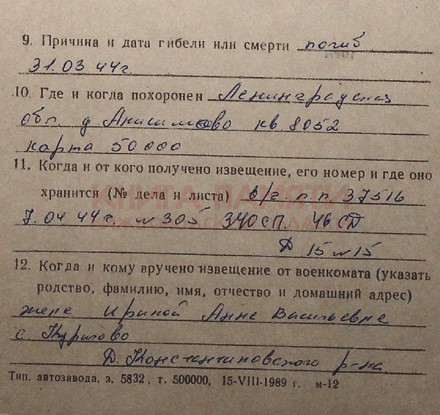 9. Причина и дата гибели или смерти погиб
31.03 44 г.
10. Где и когда похоронен Ленинградская
обл. д Анисимово кв 8052
карта 50000
11. Когда и от кого получено извещение, его номер и где оно
хранится (№ дела и листа) в/ч п.п 37516
7.04 44 г. №305 340СП 46 СД
Д 15 №15
12. Когда и кому вручено извещение от военкомата (указать
родство, фамилию, имя, отчество и домашний адрес)
жене Анне Васильевне
с Курилово
Д. Константиновского р-на
Тип. автозавода, з. 5832, т. 500000, 15-VIII-1989 г. м-12
КНИГА ПАМЯТИ